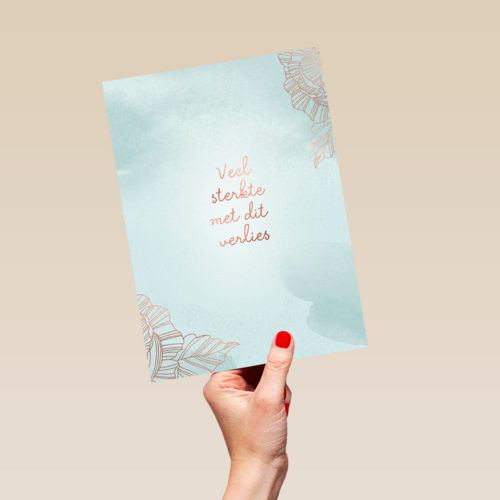 Veel
sterkte
met dit
verlies